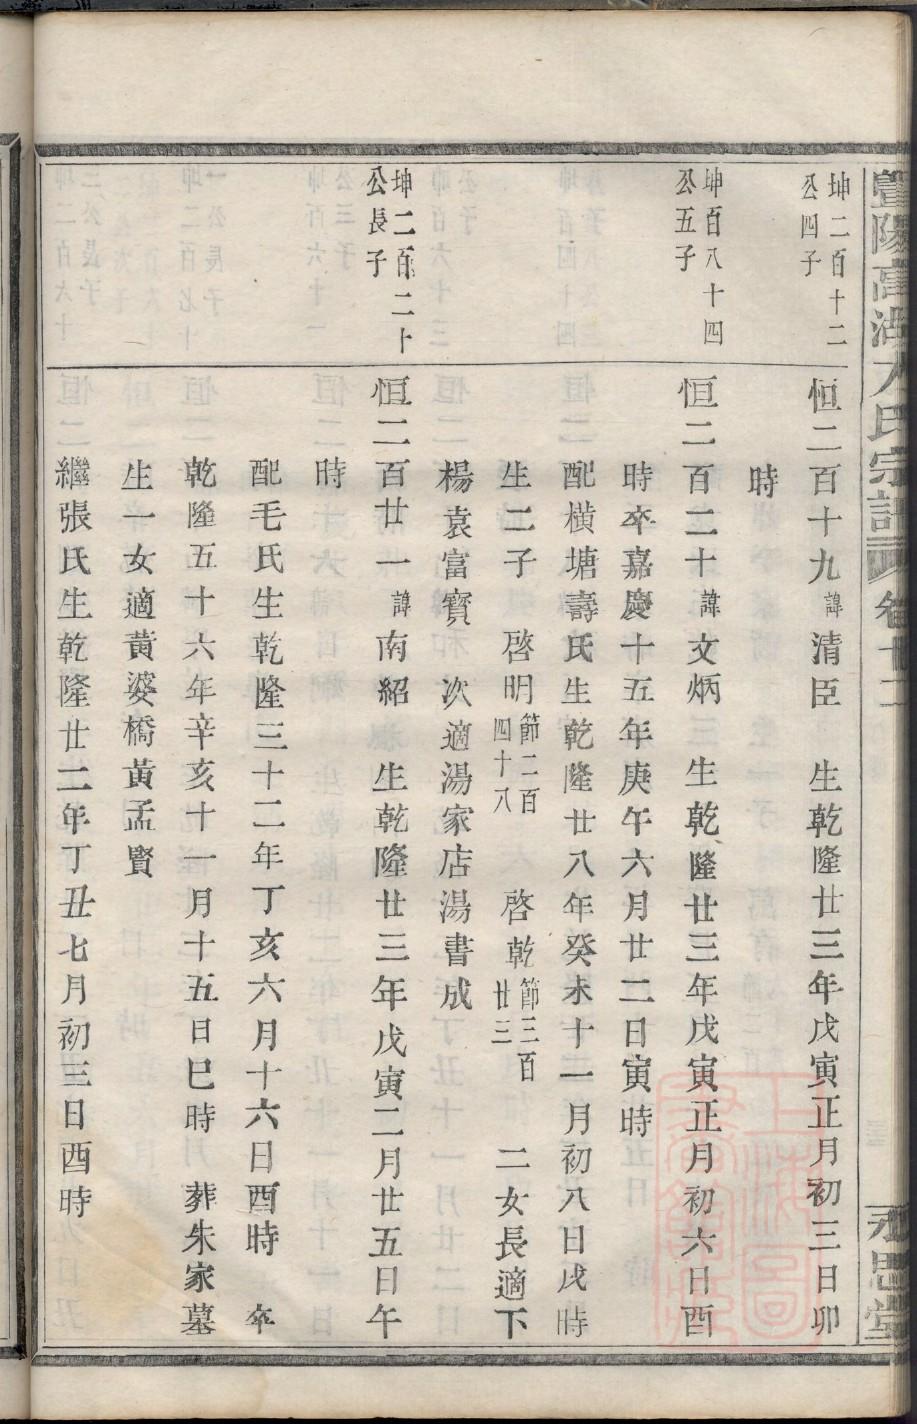 坤二百十二
公四子
恒二百十九諱清臣 生乾隆廿三年戊寅正月初三日卯
時
坤百八十四
公五子
恒二百二十諱文炳 生乾隆廿三年戊寅正月初六日酉
時卒嘉慶十五年庚午六月廿二日寅時
配橫塘壽氏生乾隆廿八年癸未十一月初八日戌時
生二子 啓明節二百四十八 啓乾節三百廿三 二女長適下
楊袁富寳 次適湯家店湯書成
坤二百二十
公長子
恒二百廿一諱南紹 生乾隆廿三年戊寅二月廿五日午
時
配毛氏生乾隆三十二年丁亥六月十六日酉時 卒
乾隆五十六年辛亥十一月十五日巳時 葬朱家墓
生一女適黃婆橋黃孟賢
繼張氏生乾隆廿二年丁丑七月初三日酉時
卷十二
永思堂